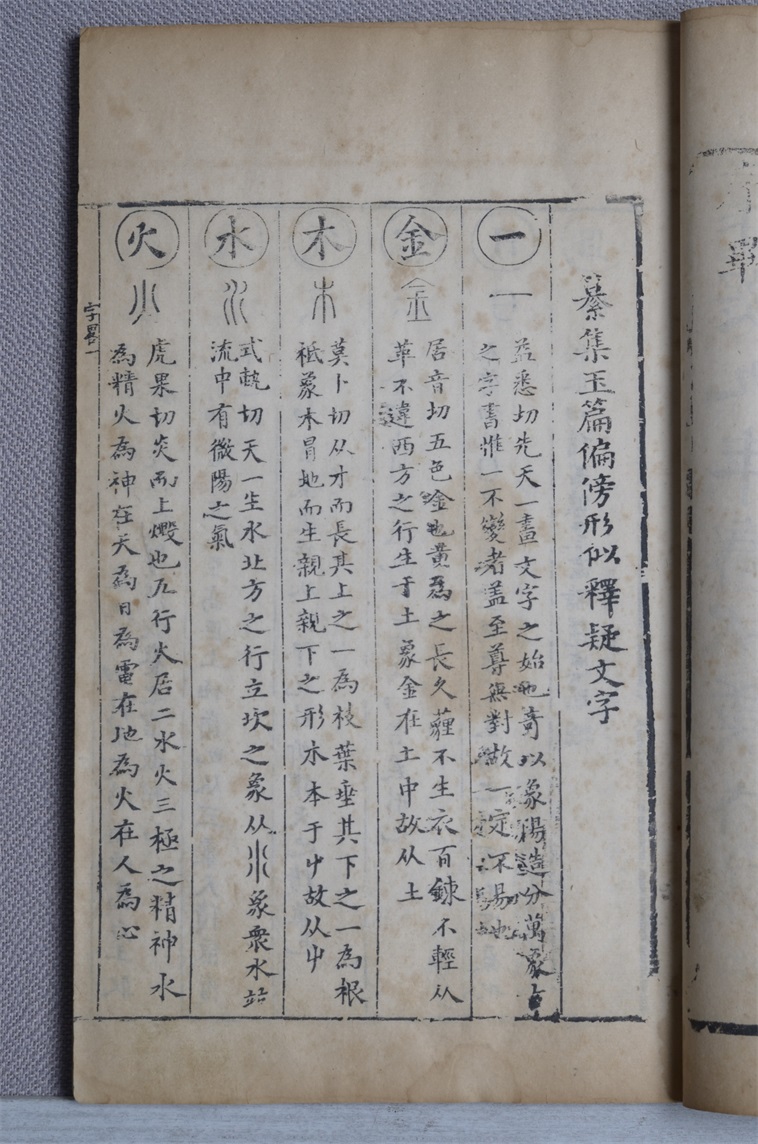 纂集玉篇偏傍形似釋疑文字
一
一
益悉切先天一畫文字之始也奇以象陽造分萬象
之字書惟一不變者蓋至尊無對故一定不易也
金
金
居音切五色金也黃為之長久薶不生衣百鍊不輕从
革不違西方之行生于土象金在土中故从土
木
木
莫卜切从才而長其上之一為枝葉垂其下之一為根
祗象木冒地而生親上親下之形木本于屮故从屮
水
水
式軌切天一生水北方之行立坎之象从水象衆水竝
流中有微陽之氣
火
火
虎果切炎而上燬也五行火居二水火三極之精神水
為精火為神在天為日為電在地為火在人為心
字畧一
畢